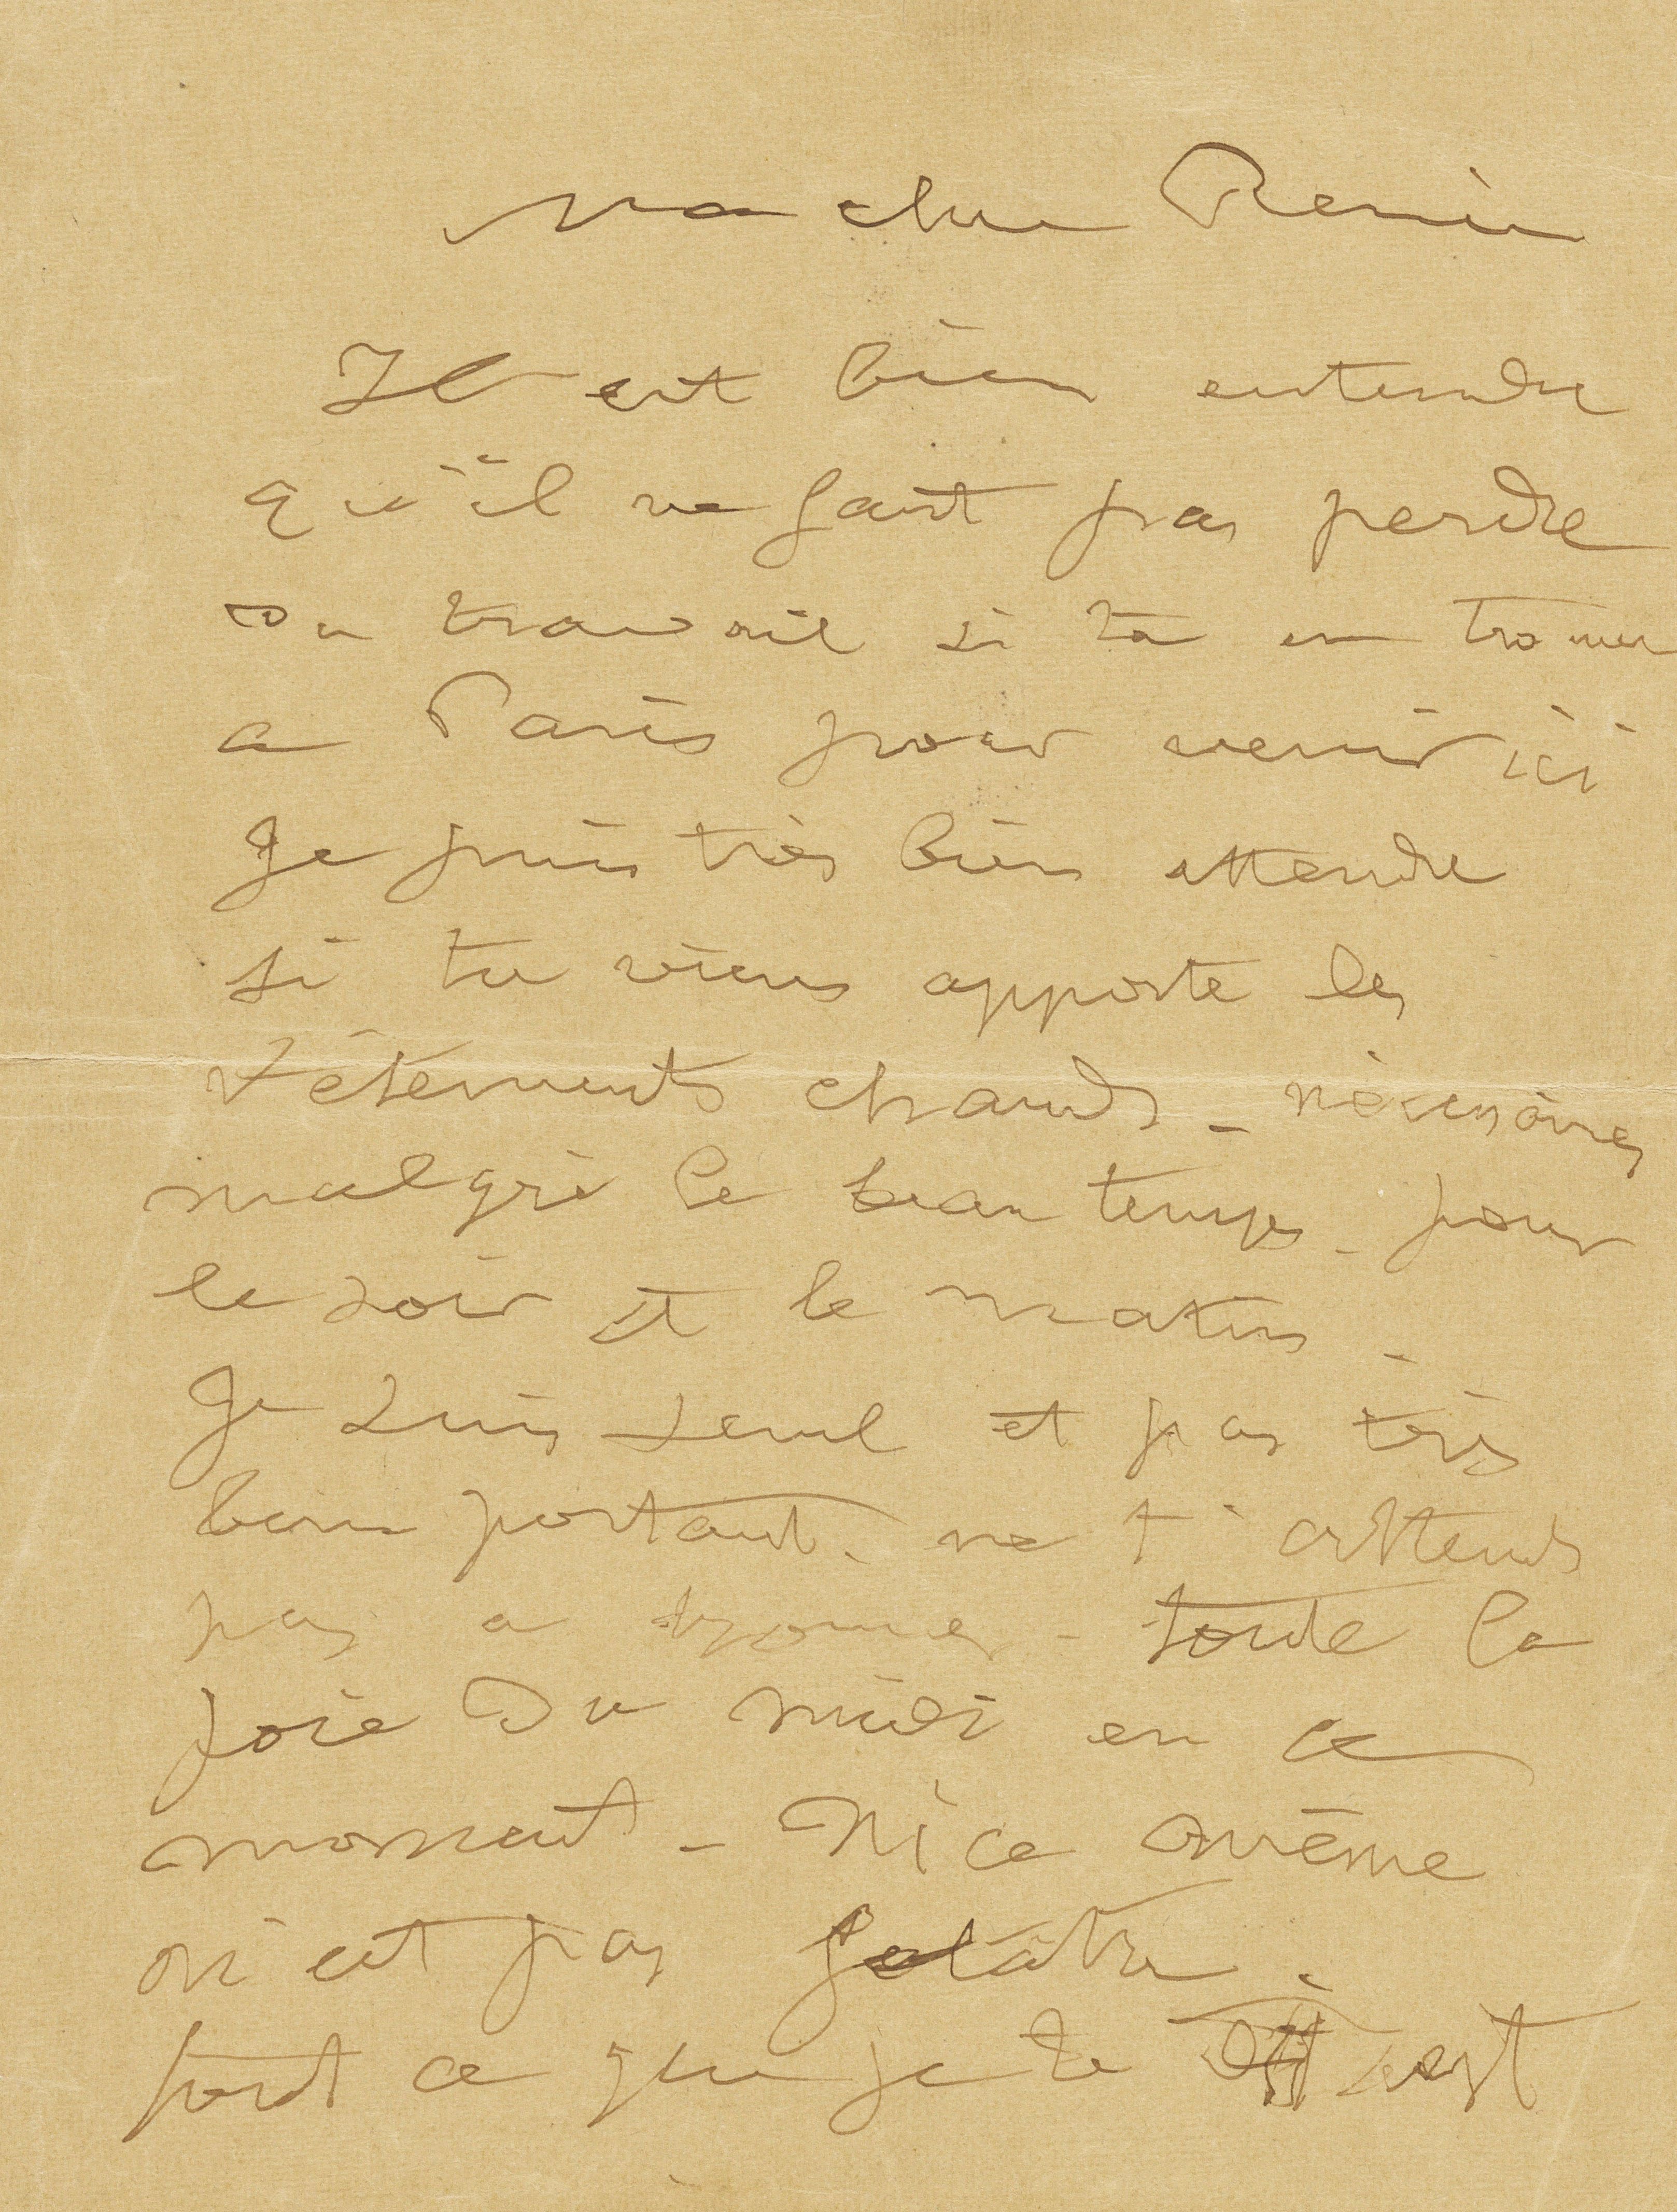 Ma chere Renée
Il est bien entendu
qu'il ne faut pas perdre
du travail si tu en trouves
a Paris pour venir ici
Je puis très bien attendre
si tu viens apporte les
vêtements chauds - nécessaires
malgré le beau temps - pour
le soir et le matin -
Je suis seul et pas très
bien portant - ne t'attends
pas a trouver - toute la
joie du midi en ce
moment - Nice même
n'est pas folâtre -
tout ce que je te dit est